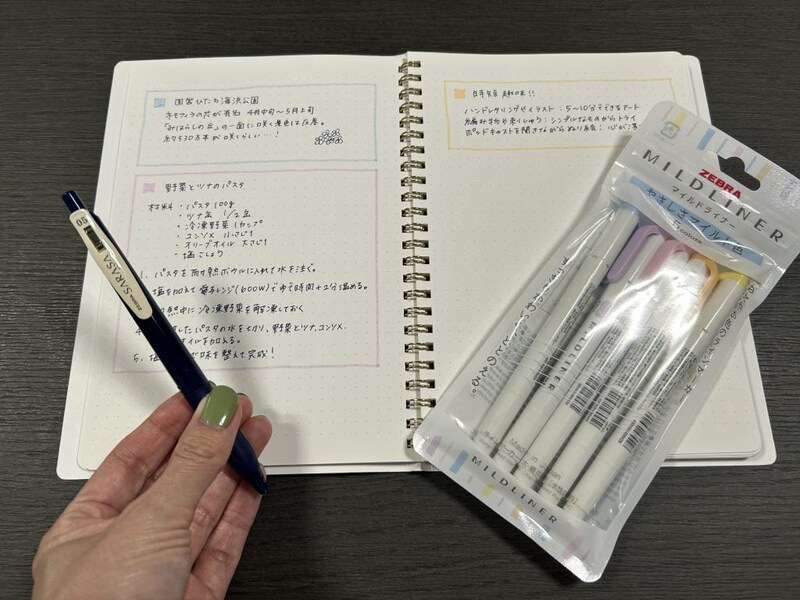 国営ひたち海浜公園
ネモフィラの花が有名 4月中旬〜5月上旬
「みはらしの丘」の一面に咲く景色は圧巻。
約530万本が咲くらしい…!
野菜とツナのパスタ
材料・パスタ 100g
・ツナ缶 1/2缶
・冷凍野菜 1カップ
・コンソメ 小さじ1
・オリーブオイル 大さじ1
・塩こしょう
1. パスタを耐熱ボウルに入れて水を注ぐ。
塩を加えて電子レンジ(600W)でゆで時間+2分温める。
熱中に冷凍野菜を解凍しておく
したパスタの水を切り、野菜とツナ、コンソメ、
オイルを加える。
5. 塩 で味を整えて完成!
趣味!!
ハンドレタリングやイラスト:5〜10分でできるアート
編み物や刺しゅう:シンプルなものからトライ
ポッドキャストを聞きながらぬり絵:心が
05
SARASA
ZEBRA
MILDLINER
マイルドライナー
やさしさマイルド色
5 colours
Made in Japan
MILDLINER